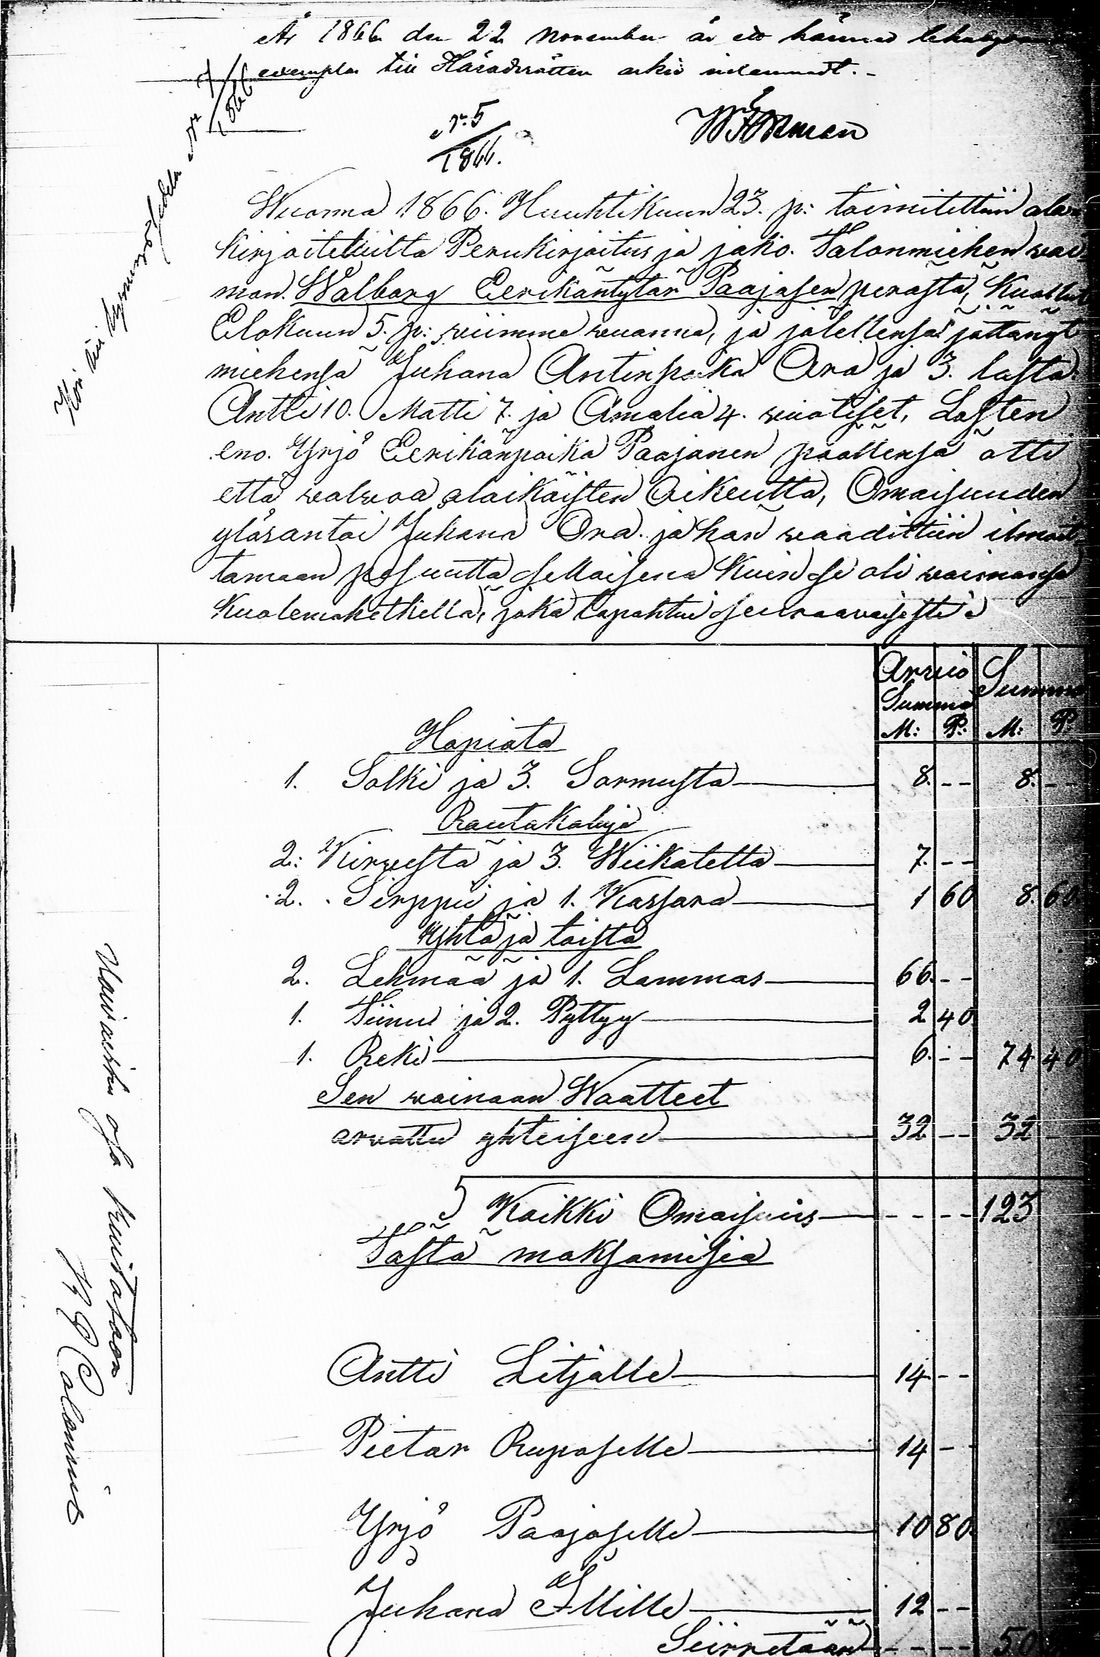 År 1866 den 22 November är ett härmed
exemplar till Häradsrätten arkiv inlemnadt. -
N:o 5
1866.
Wuonna 1866. Huuhtikuun 23. p: toimitettiin ala-
kirjoitetuilta Perukirjoitus ja jako. Talonmiehen wai-
mon. Walborg Eerikäntytär Paajasen perästä, Kuollut
Elokuun 5. p: wiimme wuonna, ja jälellensä jättänyt
miehensä Juhana Antinpoika Ora ja 3. lasta.
Antti 10. Matti 7. ja Amalia 4. wuotiset, Lasten
eno. Yrjö Eerikänpoika Paajanen päällensä otti
että walwoa alaikäisten Oikeutta, Omaisuuden
ylösantoi Juhana Ora. ja hän waadittiin ilmoit-
tamaan pesuutta sellaisena Kuin se oli waimonsa
Kuolemahetkellä, joka tapahtui seuraavaisesti:
Arwio Summa
Summa
M: P: M: P:
Hopiata
1. Solki ja 3. Sormusta 8. -- 8. --
Rautakaluja
2: Kirwesta ja 3. Wiikatetta 7. --
2. Sirppii ja 1. Kassara 1 60 8. 60
Yhtä ja toista
2. Lehmää ja 1. Lammas 66. --
1. Tiinu ja 2. Pyttyy 2 40
1. Reki 6. -- 74 40
Sen wainaan Waatteet
arwattu yhteiseen 32 -- 32
Kaikki Omaisuus - - - - 123
Tästä maksamisia
Antti Litjalle 14 --
Pietar Rupaselle 14 --
Yrjö Paajaselle 10 80
Juhana Illille 12 --
Siirretään - - - - 50
Waiwaisten osa kuitataan